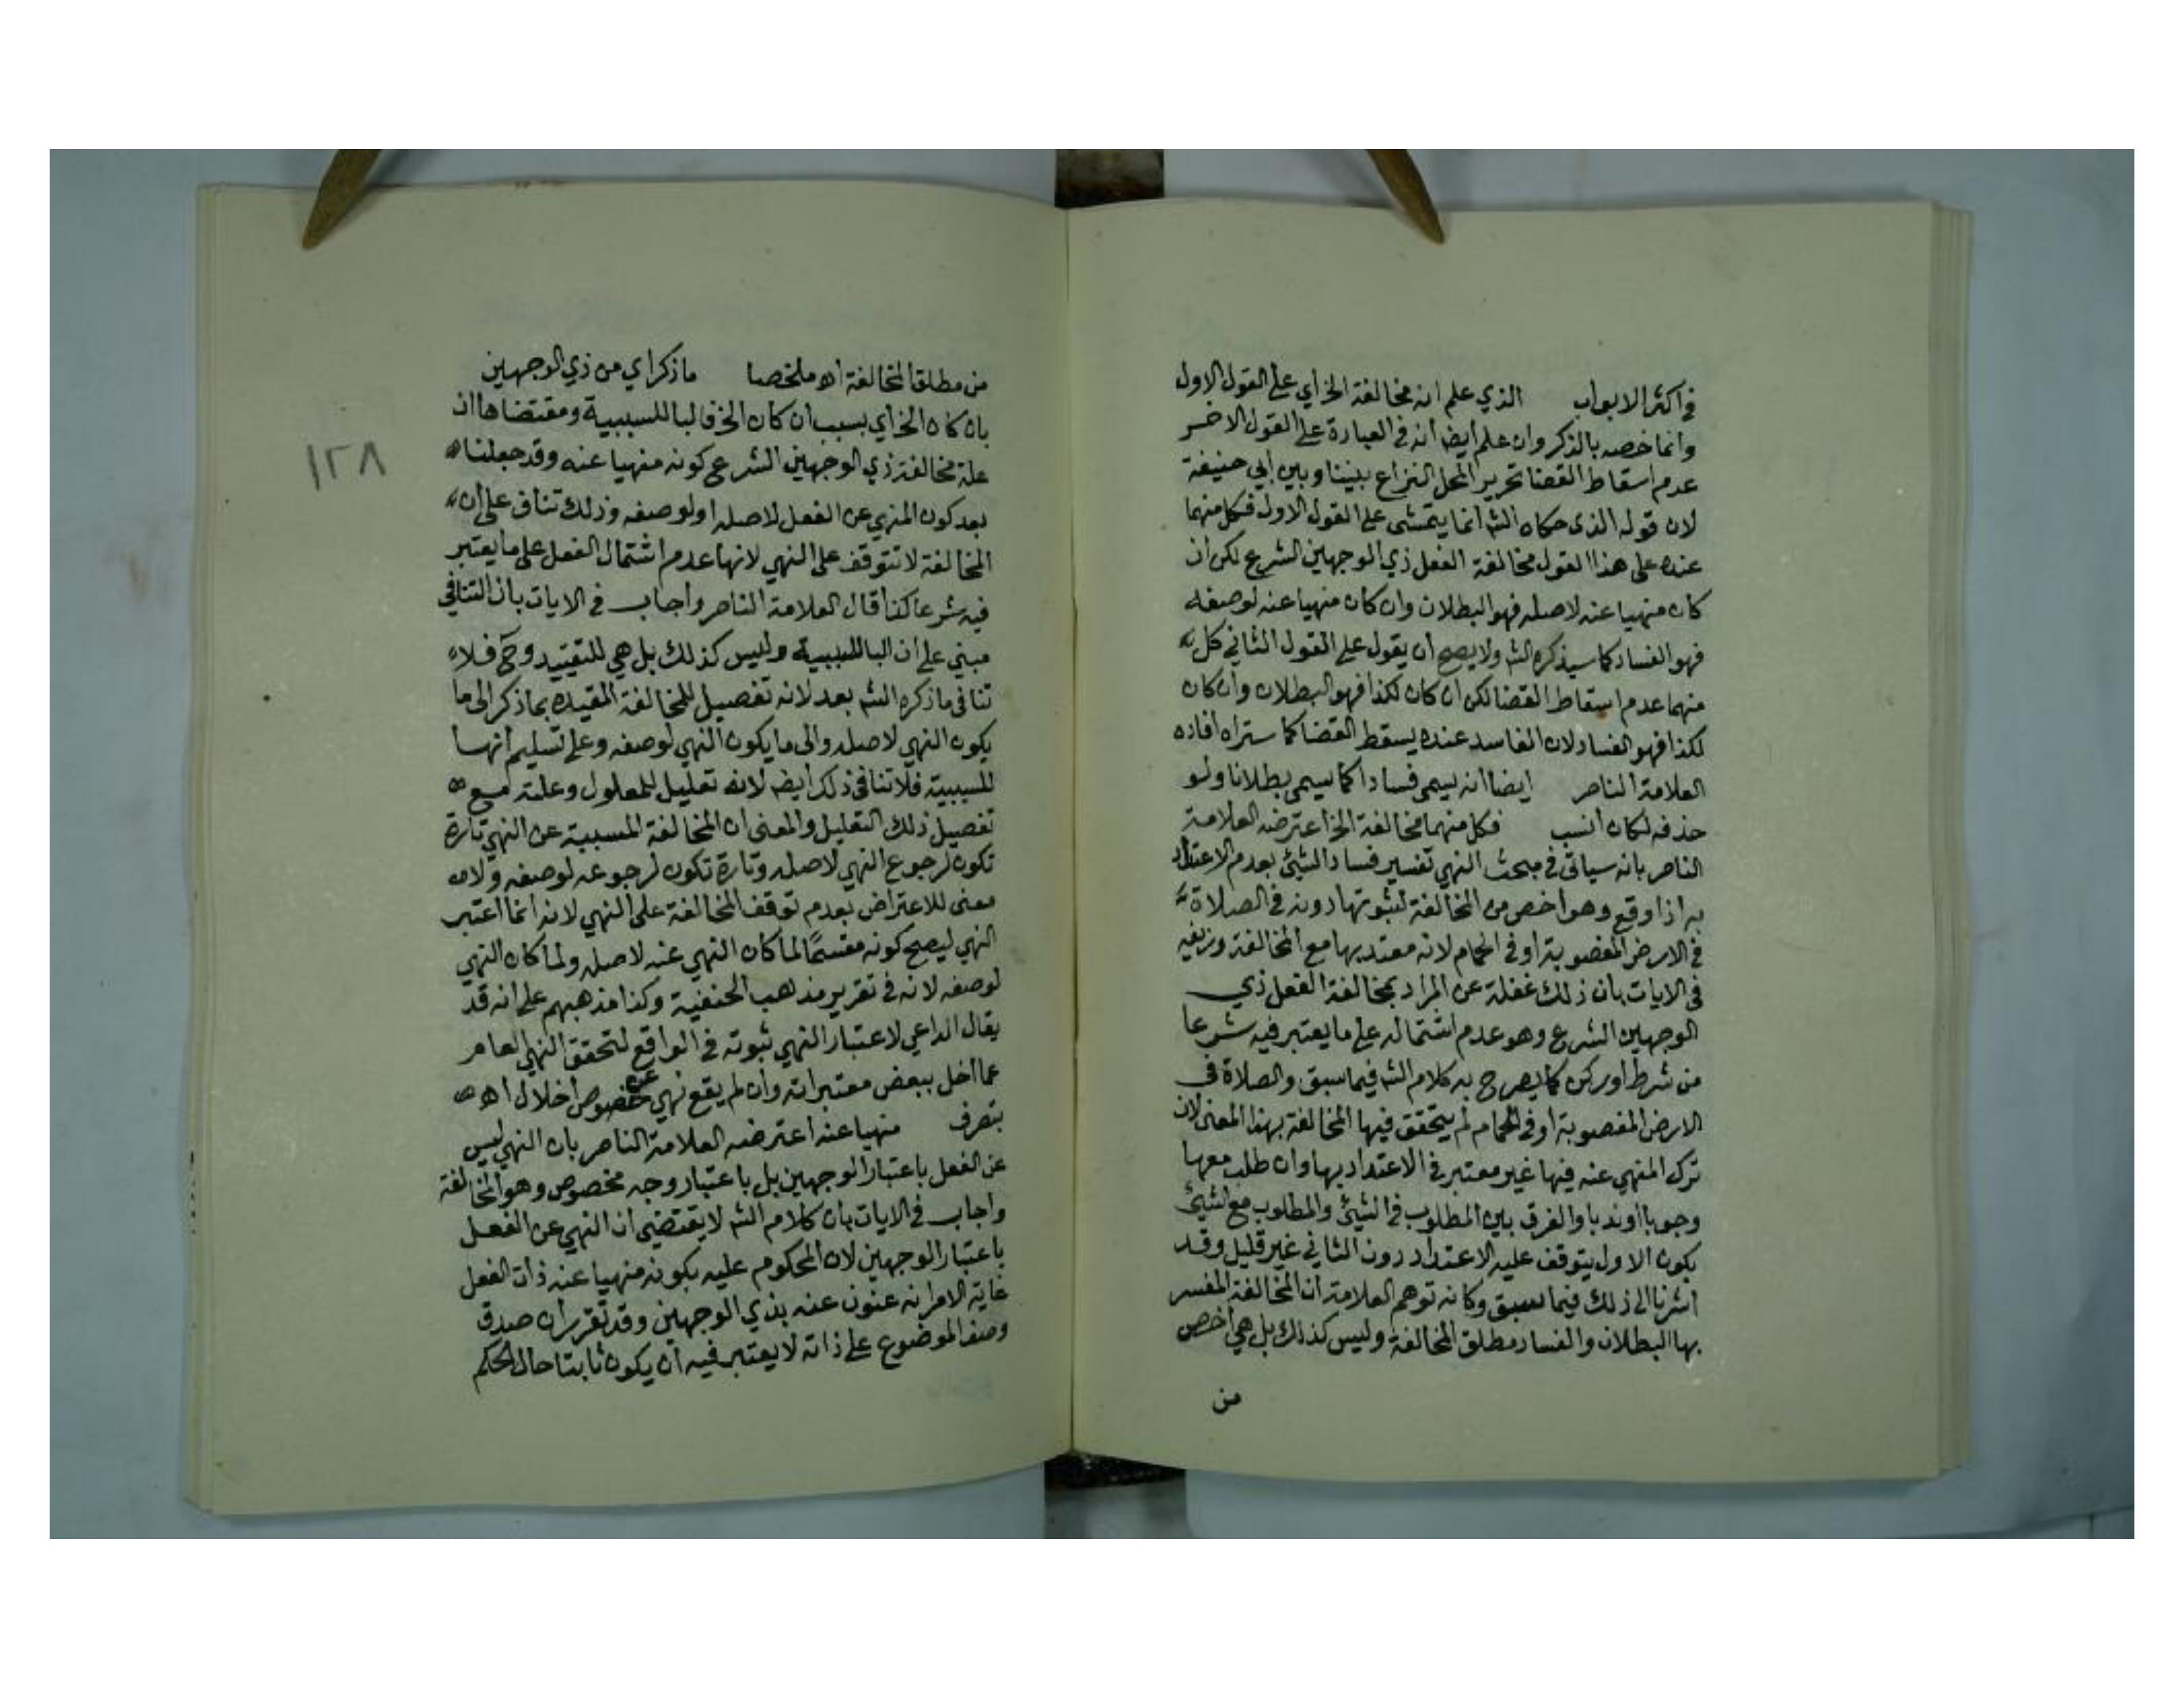 في اكثر الابواب الذي علم انه مخالفة الخ اي على القول الاول
وانما خصه بالذكر وان علم ايضا انه في العبارة على القول الاخر
عدم اسقاط القضا تحرير المحل النزاع بيننا وبين ابي حنيفة
لان قوله الذي حكاه الشم انما يتمشى على القول الاول فكل منهما
عنده على هذا القول مخالفة الفعل ذي الوجهين الشرع لكن ان
كان منهيا عنه لاصله فهو البطلان وان كان منهيا عنه لوصفه
فهو الفساد كما سيذكره الشم ولا يصح ان يقول على القول الثاني كل
منهما عدم اسقاط القضا لكن ان كان لكذا فهو البطلان وان كان
لكذا فهو الفساد لان الفاسد عنده يسقط القضا كما ستراه افاده
العلامة الناصر ايضا انه يسمى فسادا كما يسمى بطلانا ولو
حذفه لكان انسب فكل منهما مخالفة الخ اعترضه العلامة
الناصر بانه سياتي في مبحث النهي تفسير فساد الشيئ بعدم الاعتداد
به اذا وقع وهو اخص من المخالفة لثبوتها دونه في الصلاة
في الارض المغصوبة او في الحمام لانه معتد بها مع المخالفة وزيفه
في الايات بان ذلك غفلة عن المراد بمخالفة الفعل ذي
الوجهين الشرع وهو عدم اشتماله على ما يعتبر فيه شرعا
من شرط او ركن كما يصرح به كلام الشم فيما سبق والصلاة في
الارض المغصوبة او في الحمام لم يتحقق فيها المخالفة بهذا المعنى لان
ترك المنهي عنه فيها غير معتبر في الاعتداد بها وان طلب معها
وجوبا او ندبا والفرق بين المطلوب في الشيئ والمطلوب مع الشيئ
بكون الاول يتوقف عليه الاعتداد دون الثاني غير قليل وقد
اشرنا الى ذلك فيما سبق وكانه توهم العلامة ان المخالفة المفسر
بها البطلان والفساد مطلق المخالفة وليس كذلك بل هي اخص
من
من مطلق المخالفة اه ملخصا ما ذكر اي من ذي الوجهين
بان كان الخ اي بسبب ان كان الخ فالبا للسببية ومقتضاها ان
علة مخالفة ذي الوجهين الشرع كونه منهيا عنه وقد جعلنا
بعد كون المنهي عن الفعل لاصله او لوصفه وذلك تناف على ان
المخالفة لا تتوقف على النهي لانها عدم اشتمال الفعل على ما يعتبر
فيه شرعا كذا قال العلامة الناصر واجاب في الايات بان التنافي
مبني على ان البا للسببية وليس كذلك بل هي للتقييد وح فلا
تنافي ما ذكره الشم بعد لانه تفصيل للمخالفة المقيدة بما ذكر الى ما
يكون النهي لاصله والى ما يكون النهي لوصفه وعلى تسليم انها
للسببية فلا تنافي ذلك ايضا لانه تعليل للمعلول وعلته مع
تفصيل ذلك التعليل والمعنى ان المخالفة المسببة عن النهي تارة
تكون لرجوع النهي لاصله وتارة تكون لرجوعه لوصفه ولان
معنى للاعتراض بعدم توقف المخالفة على النهي لانه انما اعتبر
النهي ليصح كونه مقسما لما كان النهي عنه لاصله ولما كان النهي
لوصفه لانه في تقرير مذهب الحنفية وكذا مذهبهم على انه قد
يقال الداعي لاعتبار النهي ثبوته في الواقع لتحقق النهي العام
عما اخل ببعض معتبراته وان لم يقع نهي عن خصوص اخلال اه
بتصرف منهيا عنه اعترضه العلامة الناصر بان النهي ليس
عن الفعل باعتبار الوجهين بل باعتبار وجه مخصوص وهو المخالفة
واجاب في الايات بان كلام الشم لا يقتضي ان النهي عن الفعل
باعتبار الوجهين لان المحكوم عليه بكونه منهيا عنه ذات الفعل
غاية الامر انه عنون عنه بذي الوجهين وقد تقرر ان صدق
وصف الموضوع على ذاته لا يعتبر فيه ان يكون ثابتا حال الحكم
١٢٨